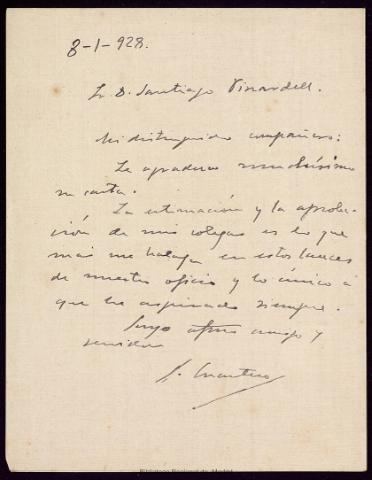 8-1-928.
Sr. D. Santiago Vinardell.
Mi distinguido compañero:
Le agradezco muchísimo
su carta.
La estimación y la aproba-
ción de mis colegas es lo que
más me halaga en estos lances
de nuestro oficio y lo único á
que he aspirado siempre.
Suyo afmo amigo y
servidor
Biblioteca Regional de Madrid